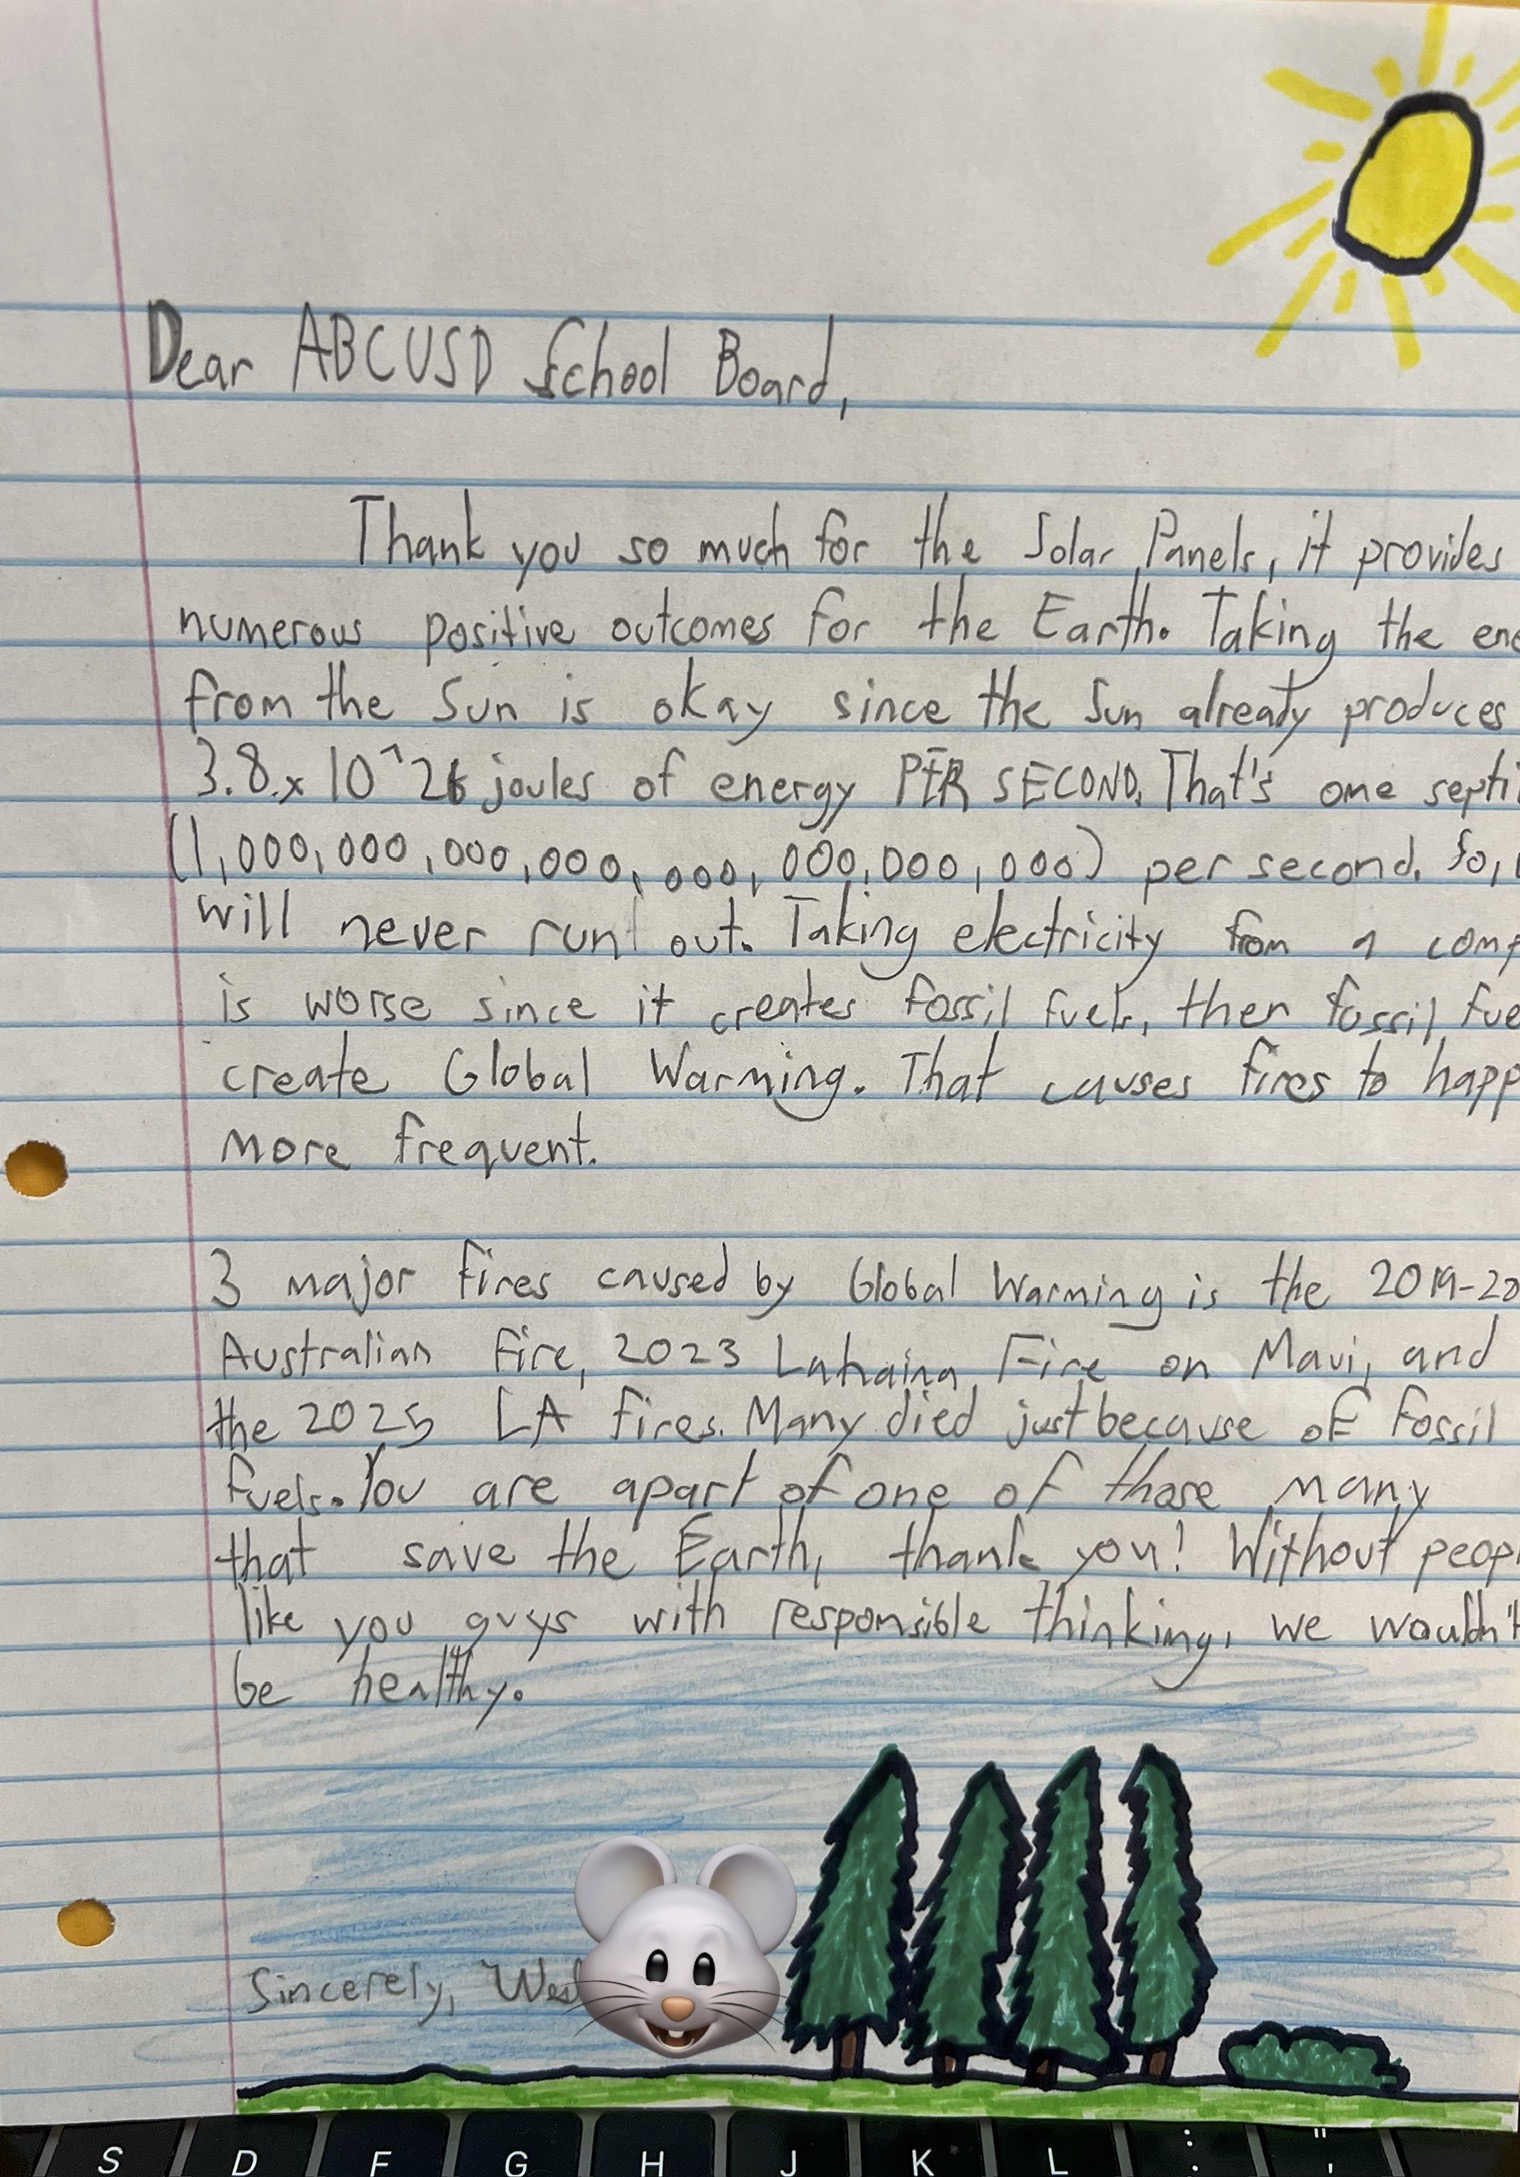 Dear ABCUSD School Board,
Thank you so much for the Solar Panels, it provides
numerous positive outcomes for the Earth. Taking the
from the Sun is okay since the Sun already produces
3.8 x 10^26 joules of energy PER SECOND. That's one
(1,000,000,000,000,000,000,000,000) per second. So,
will never run out. Taking electricity from a
is worse since it creates fossil fuels, then fossil
create Global Warming. That causes fires to
more frequent.
3 major fires caused by Global Warming is the 2019-20
Australian Fire, 2023 Lahaina Fire on Maui, and
the 2025 LA fires. Many died just because of fossil
fuels. You are apart of one of those many
that save the Earth, thank you! Without
like you guys with responsible thinking, we wouldn't
be healthy.
Sincerely,
S D F G H J K L : ; " '